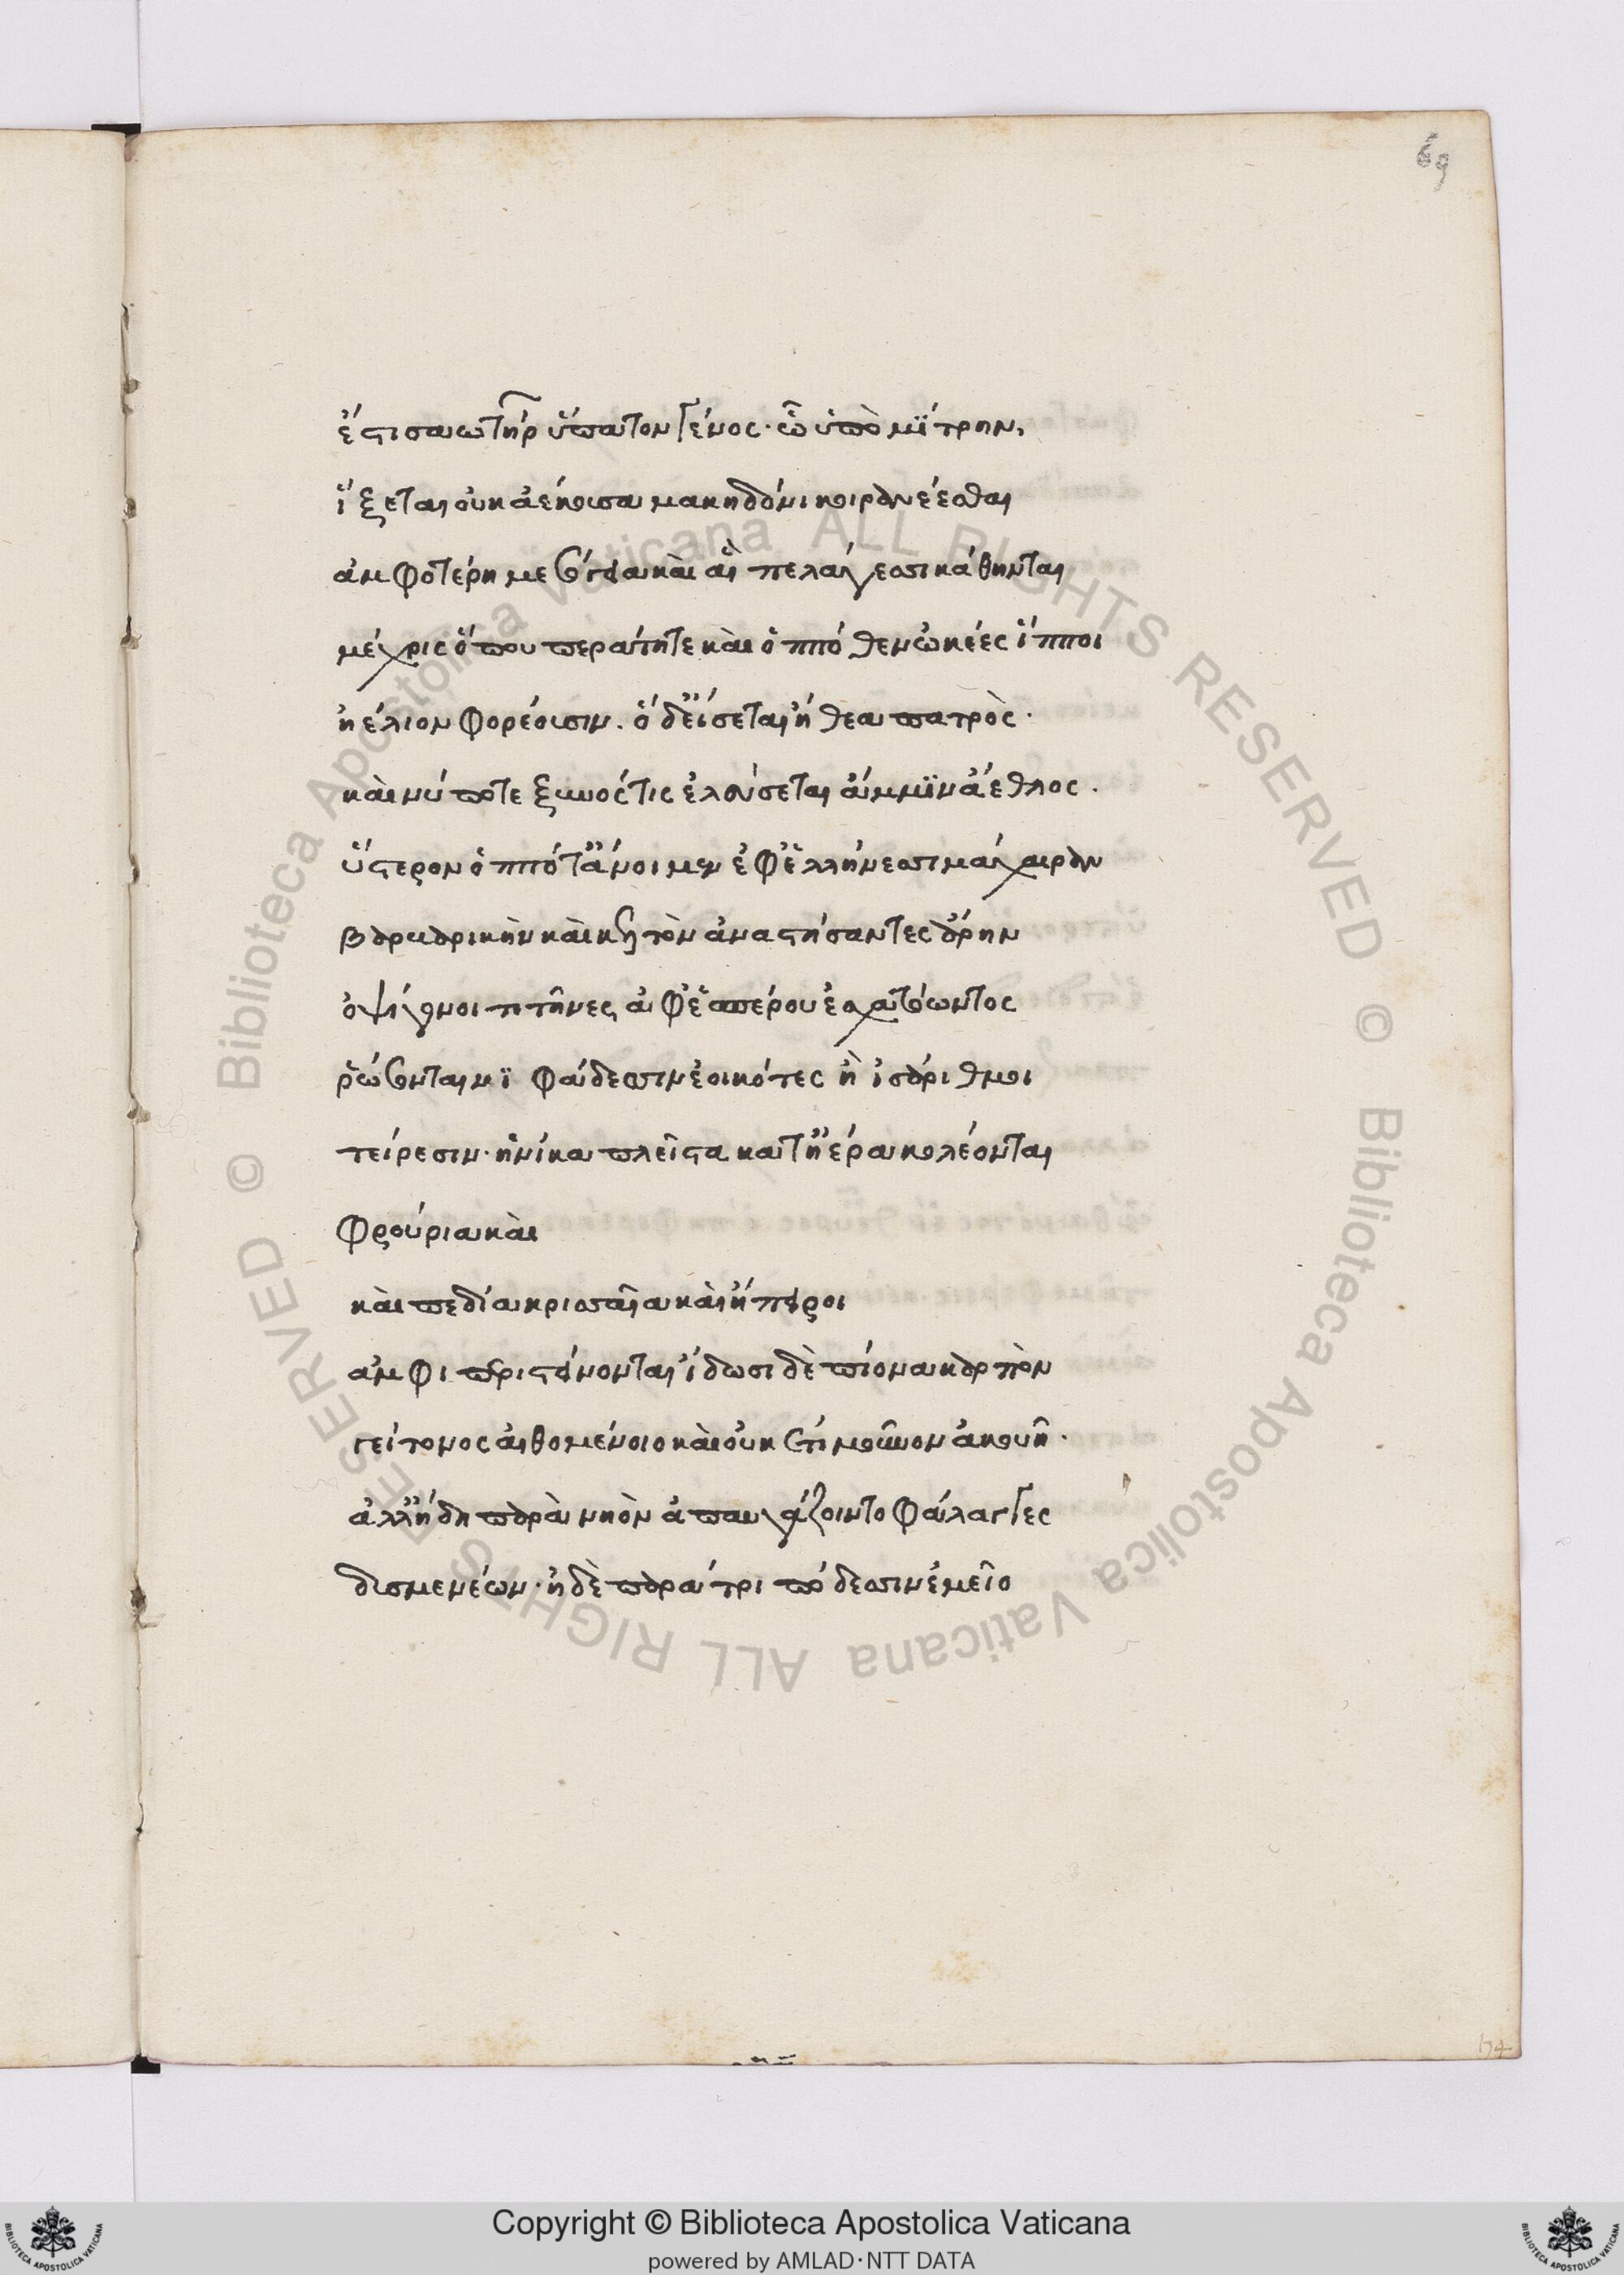 69
ἔστι σαωτὴρ ὕπατον γένος· ὧ ὑπὸ μΐτρην,
ἵξεται οὐκ ἀέκουσα μακηδόνι κοιρανέεσθαι
ἀμφοτέρη μεσόγεια καὶ αἳ πελάγεσσι κάθηνται
μέχρις ὅπου περάτητε καὶ ὁππόθεν ὠκέες ἵπποι
ἠέλιον φορέουσιν. ὁ δ' εἴσεται ἤθεα πατρὸς.
καὶ νύ ποτε ξυνός τις ἐλεύσεται ἄμμϊν ἄεθλος.
ὕστερον ὁππότ' ἂν οἱ μεν ἐφ' ἑλλήνεσσι μάχαιραν
βαρβαρικὴν καὶ κελτὸν ἀναστήσαντες ἄρην
ὀψίγονοι τιτῆνες ἀφ' ἑσπέρου ἐσχατόωντος
ῥώσονται νϊφάδεσσιν ἐοικότες ἢ ἰσάριθμοι
τείρεσιν· ἡνίκα πλεῖστα κατ' ἠέρα κολέονται
φρούρια καὶ
καὶ πεδία κρισσαῖα καὶ ἤπειροι
ἀμφιπεριστείνονται ἴδωσι δὲ πίονα καρπὸν
γείτονος αἰθομένοιο καὶ οὐκ ἔτι μοῦνον ἀκουῆ.
ἀλλ' ἤδη παρὰ νηὸν ἀπαυγάζοιντο φάλαγγες
δυσμενέων· ἠδὲ παρὰ τριπόδεσσιν ἐμεῖο
174
Copyright © Biblioteca Apostolica Vaticana
powered by AMLAD·NTT DATA